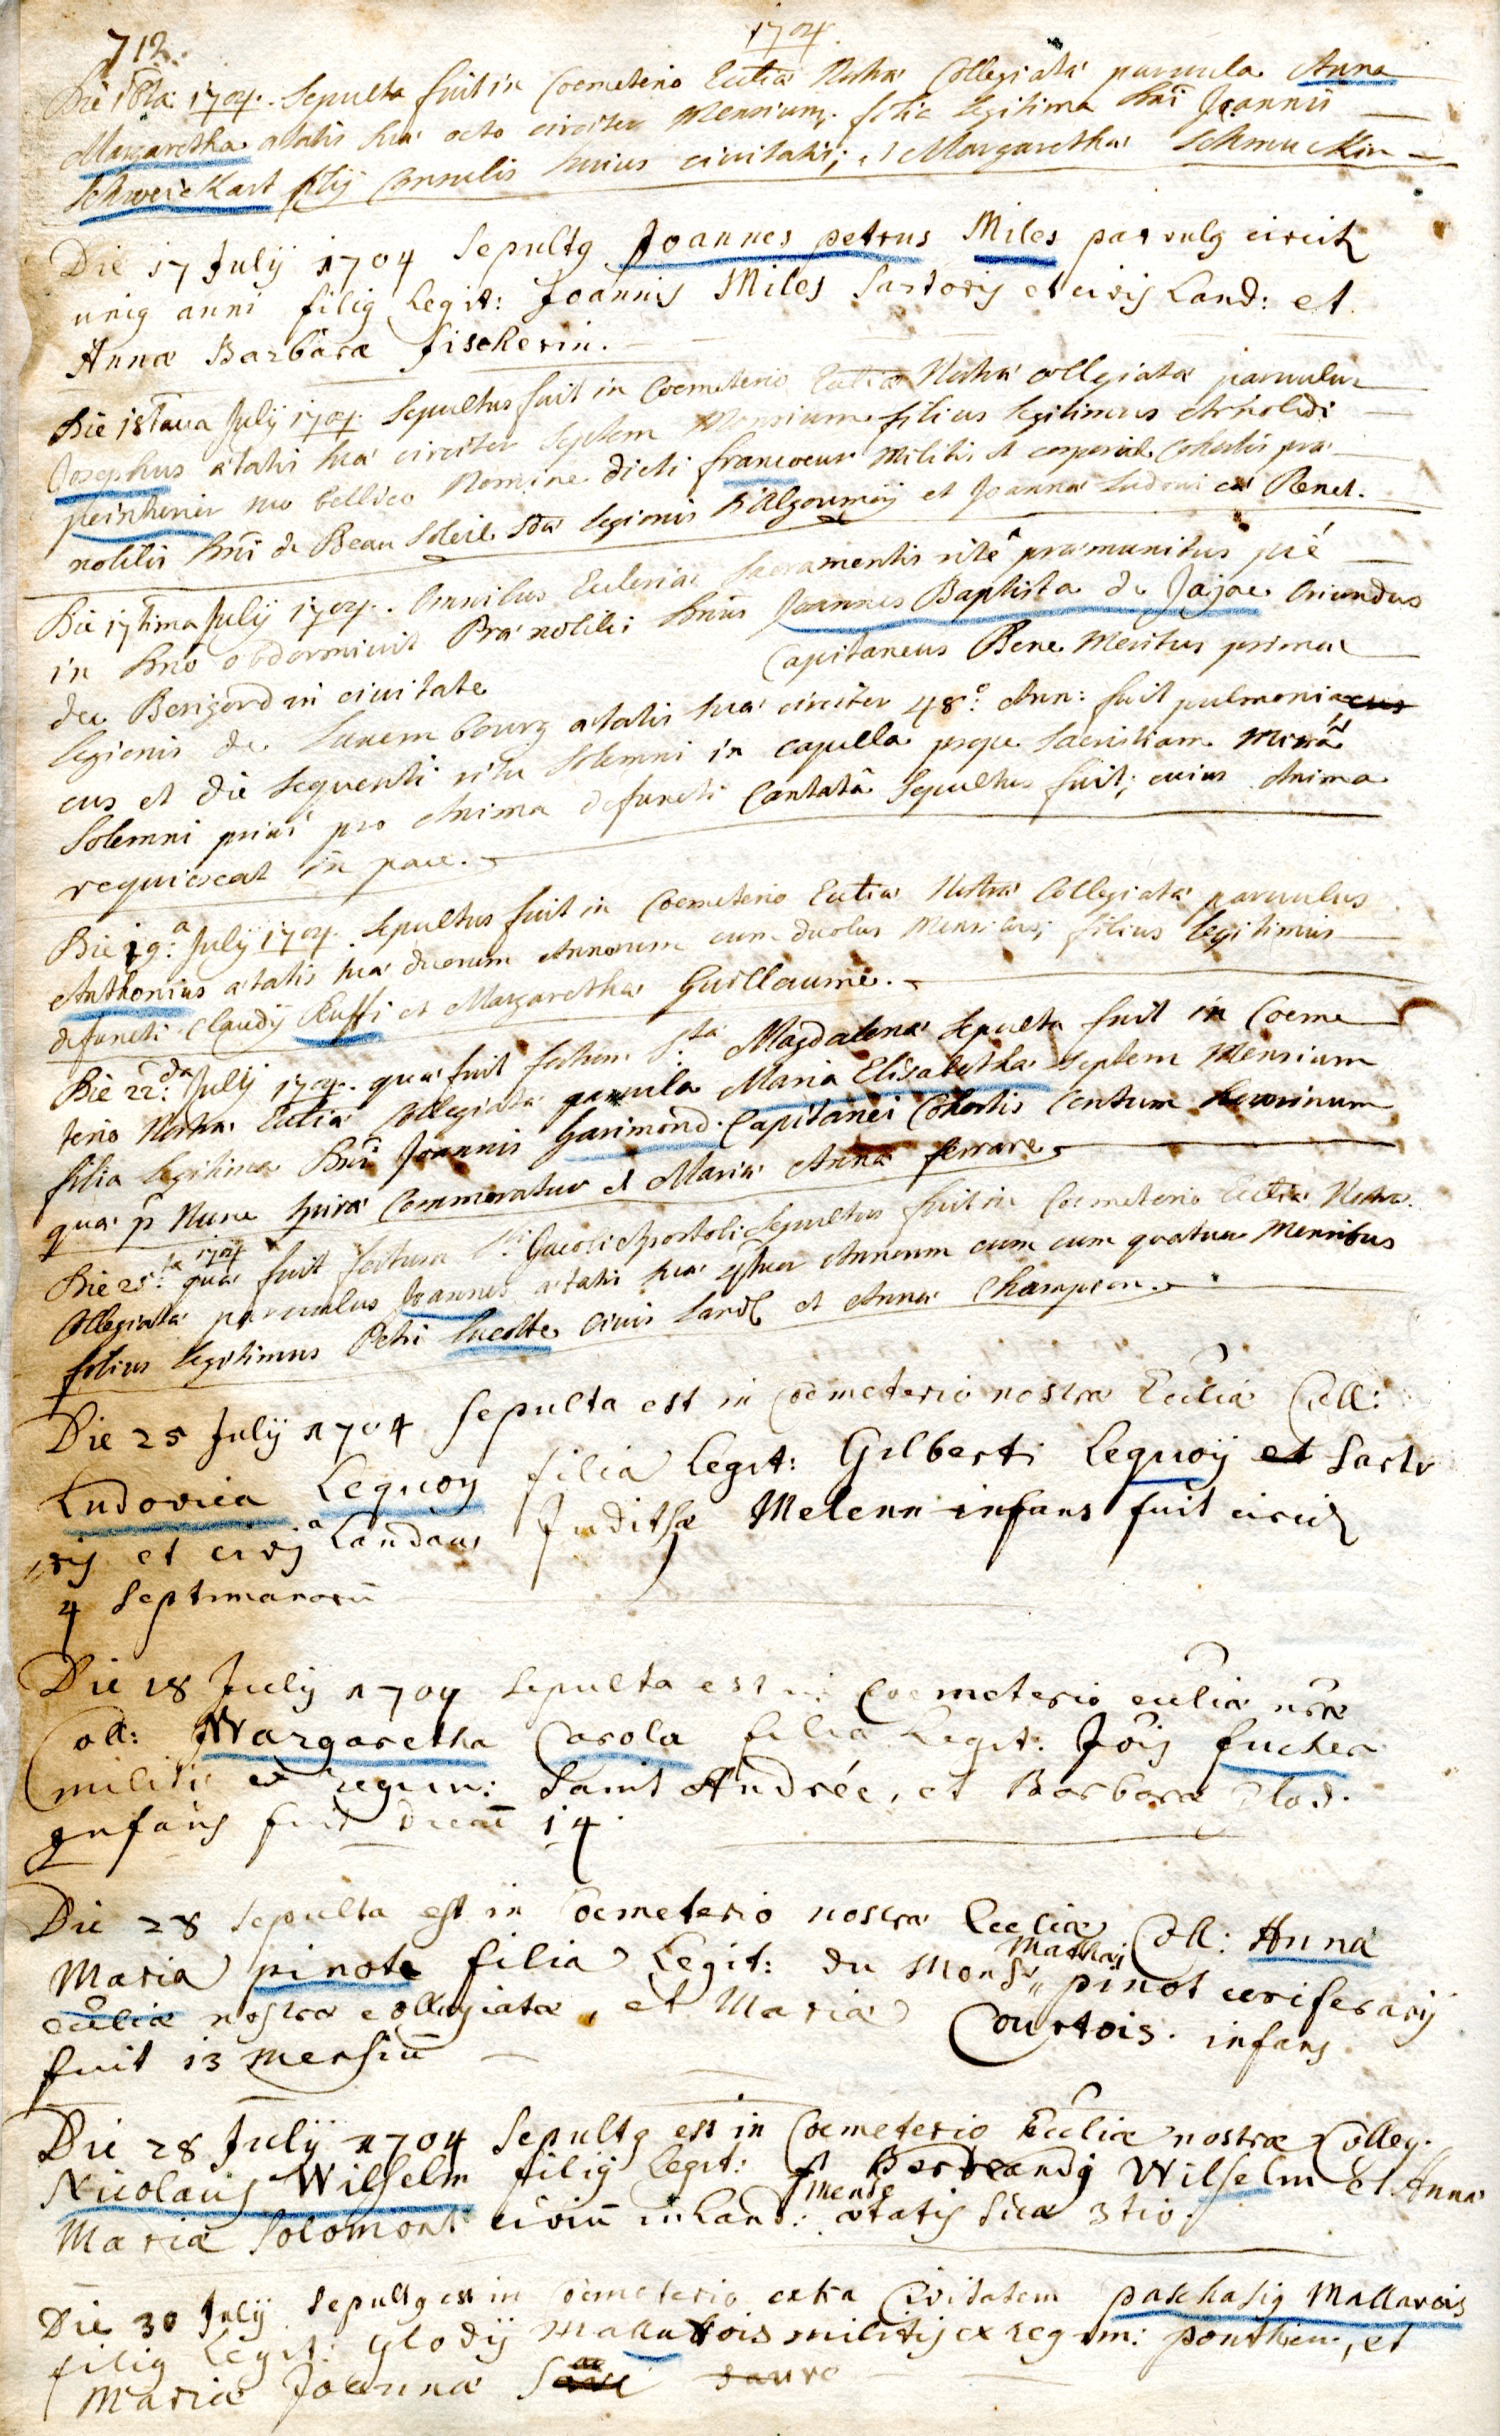 712.
1704.
Die 16ta 1704. Sepulta fuit in Coemeterio Eccliae Nostrae Collegiatae parvula Anna
Margaretha aetatis suae octo circiter Mensium. filia legitima Dni Joannis
Schweickart filij Consulis huius civitatis; et Margarethae Schmuckin
Die 17 Julij 1704 Sepultq Joannes petrus Miles parvulq circit
uniq anni filiq Legit: Joannis Miles Sartoris et civis Land: et
Annae Barbarae fischerin.
Die 18tava Julij 1704 Sepultus fuit in Coemeterio Eccliae Nostrae collegiatae parvulus
Josephus aetatis suae circiter septem Mensium filius legitimus Arnoldi
peinthenier suo bellico Nomine dicti francoeur Militis et corporal Cohortis prae
nobilis Dni de Beau Soleil legionis D'Algoumoy et Joannae Ludovicae Penet.
Die 17tima Julij 1704. Omnibus Ecclesiae Sacramentis ritè praemunitus piè
in Dno obdormivit Prae nobilis Dnus Joannes Baptista de Jajac Oriundus
de Perigord in civitate Capitaneus Bene Meritus primae
legionis de Luxembourg aetatis suae circiter 48o: Ann: fuit pulmoniacus
cus et die sequenti ritu Solemni in capella prope Sacristiam Missâ
Solemni prius pro Anima defuncti Cantatâ Sepultus fuit; cuius Anima
requiescat in pace.
Die 19:a Julij 1704. Sepultus fuit in Coemeterio Eccliae Nostrae Collegiatae parvulus
Anthonius aetatis suae duorum Annorum cum duobus Mensibus; filius legitimus
defuncti Claudij Ruffi et Margarethae Guillaume.
Die 22:da Julij 1704. quae fuit festum Stae Magdalenae Sepulta fuit in Coeme
terio Nostrae Eccliae Collegiatae parvula Maria Elisabetha septem Mensium
filia legitima Dni Joannis Garimond. Capitanei Cohortis Centum hominum
quae p Nunc Spirae Commoratur et Mariae Annae ferrare
Die 25:ta 1704 quae fuit festum Sti Jacobi Apostoli Sepultus fuit in Coemeterio Eccliae Nostrae
Collegiatae parvulus Joannes aetatis suae Annum cum cum quatuor Mensibus
filius legitimus Petri Lucotte civis Land et Annae Champion.
Die 25 Julij 1704 Sepulta est in Coemeterio nostrae Eccliae Coll:
Ludovica Lequoy filia Legit: Gilberti Lequoij et Sarto
ris et civis Landavi Judithae Melenn infans fuit circit
4 Septimanarū
Die 28 Julij 1704 Sepulta est in Coemeterio eccliae nrae
Coll: Margaretha Carola filia Legit: Jois fucher
militis ex regim: Saint Andrée, et Barbara Clod.
infans fuit dierū 14.
Die 28 Sepulta est in Coemeterio nostrae Eccliae Coll: Anna
Maria pinote filia Legit: du Monsr Mathaei pinot ceriferarij
eccliae nostrae collegiatae, et Mariae Courtois. infans
fuit 13 Mensiū
Die 28 Julij 1704 Sepultq est in Coemeterio Eccliae nostrae Colleg.
Nicolaus Wilhelm filiq Legit: Bertrandq Wilhelm et Anna
Maria Solomont civiū in Land: aetatis suae mense 3tio.
Die 30 Julij Sepultq est in Coemeterio extra Civitatem paschasiq Mallarois
filiq Legit: Glodij Mallarois militis ex regim: ponthieu, et
Mariae Joannae Sauvo